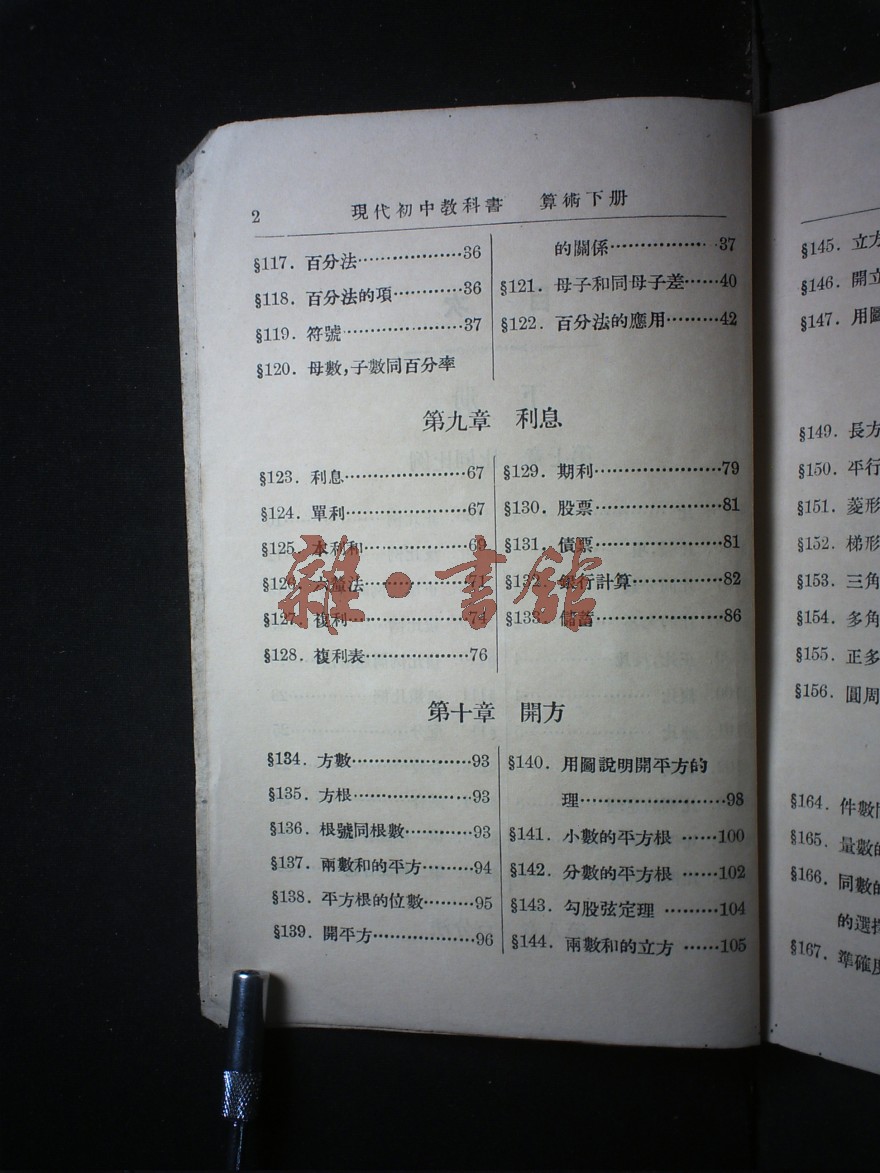 2 現代初中教科書 算術下册
§117. 百分法··················36
§118. 百分法的項············36
§119. 符號····················37
§120. 母數,子數同百分率
的關係··················37
§121. 母子和同母子差······40
§122. 百分法的應用·········42
第九章 利息
§123. 利息····················67
§124. 單利····················67
§125. 本利和·················69
§126. 六釐法·················71
§127. 複利····················74
§128. 複利表·················76
§129. 期利·····················79
§130. 股票·····················81
§131. 債票·····················81
§132. 銀行計算···············82
§133. 儲蓄·····················86
第十章 開方
§134. 方數····················93
§135. 方根····················93
§136. 根號同根數············93
§137. 兩數和的平方·········94
§138. 平方根的位數·········95
§139. 開平方·················96
§140. 用圖說明開平方的
理························98
§141. 小數的平方根 ······100
§142. 分數的平方根 ······102
§143. 勾股弦定理 ·········104
§144. 兩數和的立方 ······105
§145. 立方
§146. 開立
§147. 用圖
§149. 長方
§150. 平行
§151. 菱形
§152. 梯形
§153. 三角
§154. 多角
§155. 正多
§156. 圓周
§164. 件數
§165. 量數的
§166. 同數的
的選擇
§167. 準確度
雜·書館